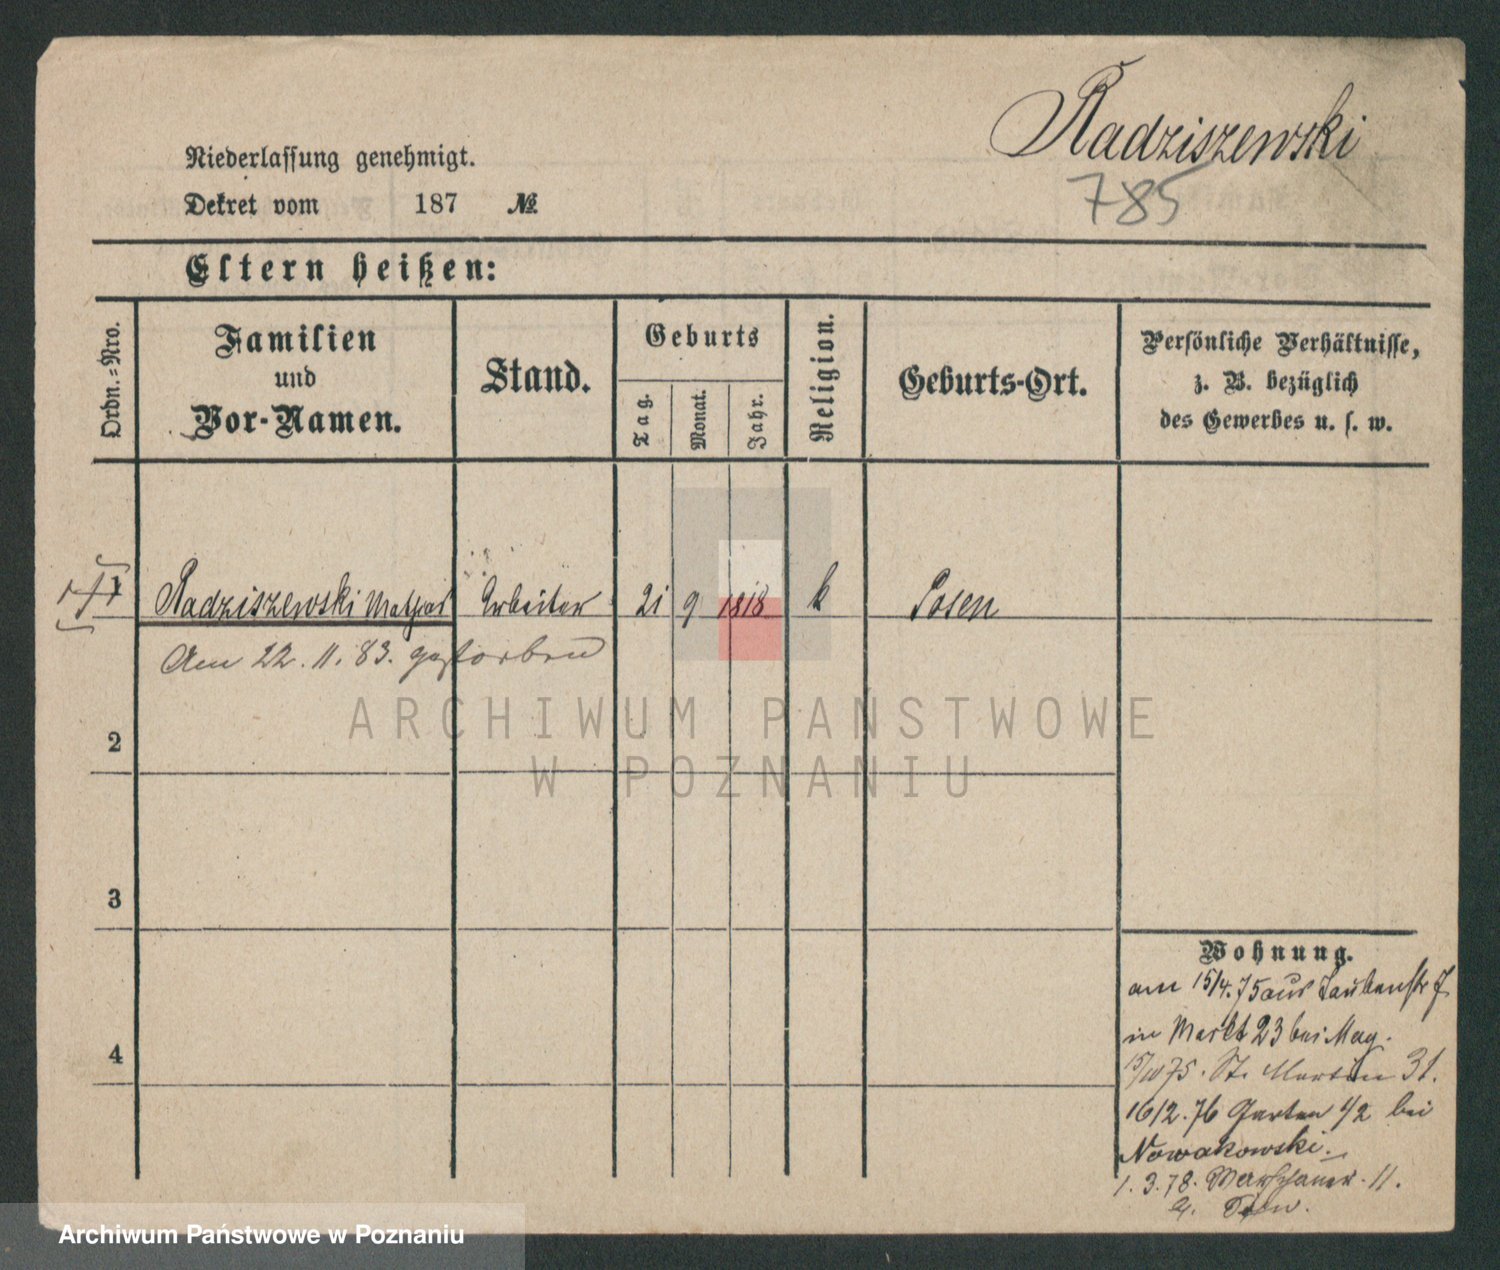 Radziszewski
785
Niederlassung genehmigt.
Dekret vom 187 №
Eltern heißen:
Ordn.=Nro.
Familien
und
Vor-Namen.
Stand.
Geburts
Tag.
Monat.
Jahr.
Religion.
Geburts-Ort.
Persönliche Verhältnisse,
z. B. bezüglich
des Gewerbes u. s. w.
1 Radziszewski Mathias Arbeiter 21 9 1818 k Posen
Am 22. 11. 83. gestorben
2
3
4
Wohnung.
am 15/4. 75 aus Taubenstr 7
in Markt 23 bei Mag.
15/10 75. St. Martin 31.
16/2. 76 Garten 1/2 bei
Nowakowski.
1. 3. 78. 11.
ARCHIWUM PAŃSTWOWE
W POZNANIU
Archiwum Państwowe w Poznaniu